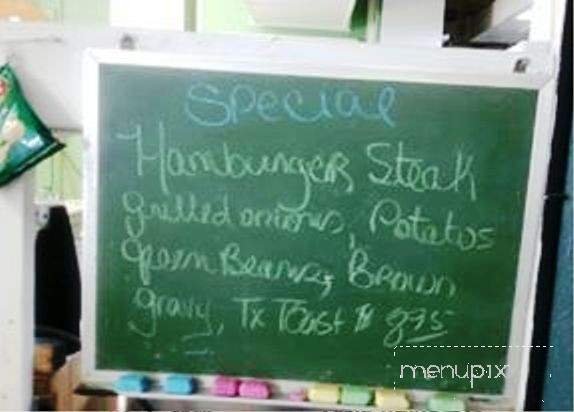 Special
Hamburger Steak
grilled onions, Potatos
green Beans, Brown
gravy, Tx Toast $ 875
menupix